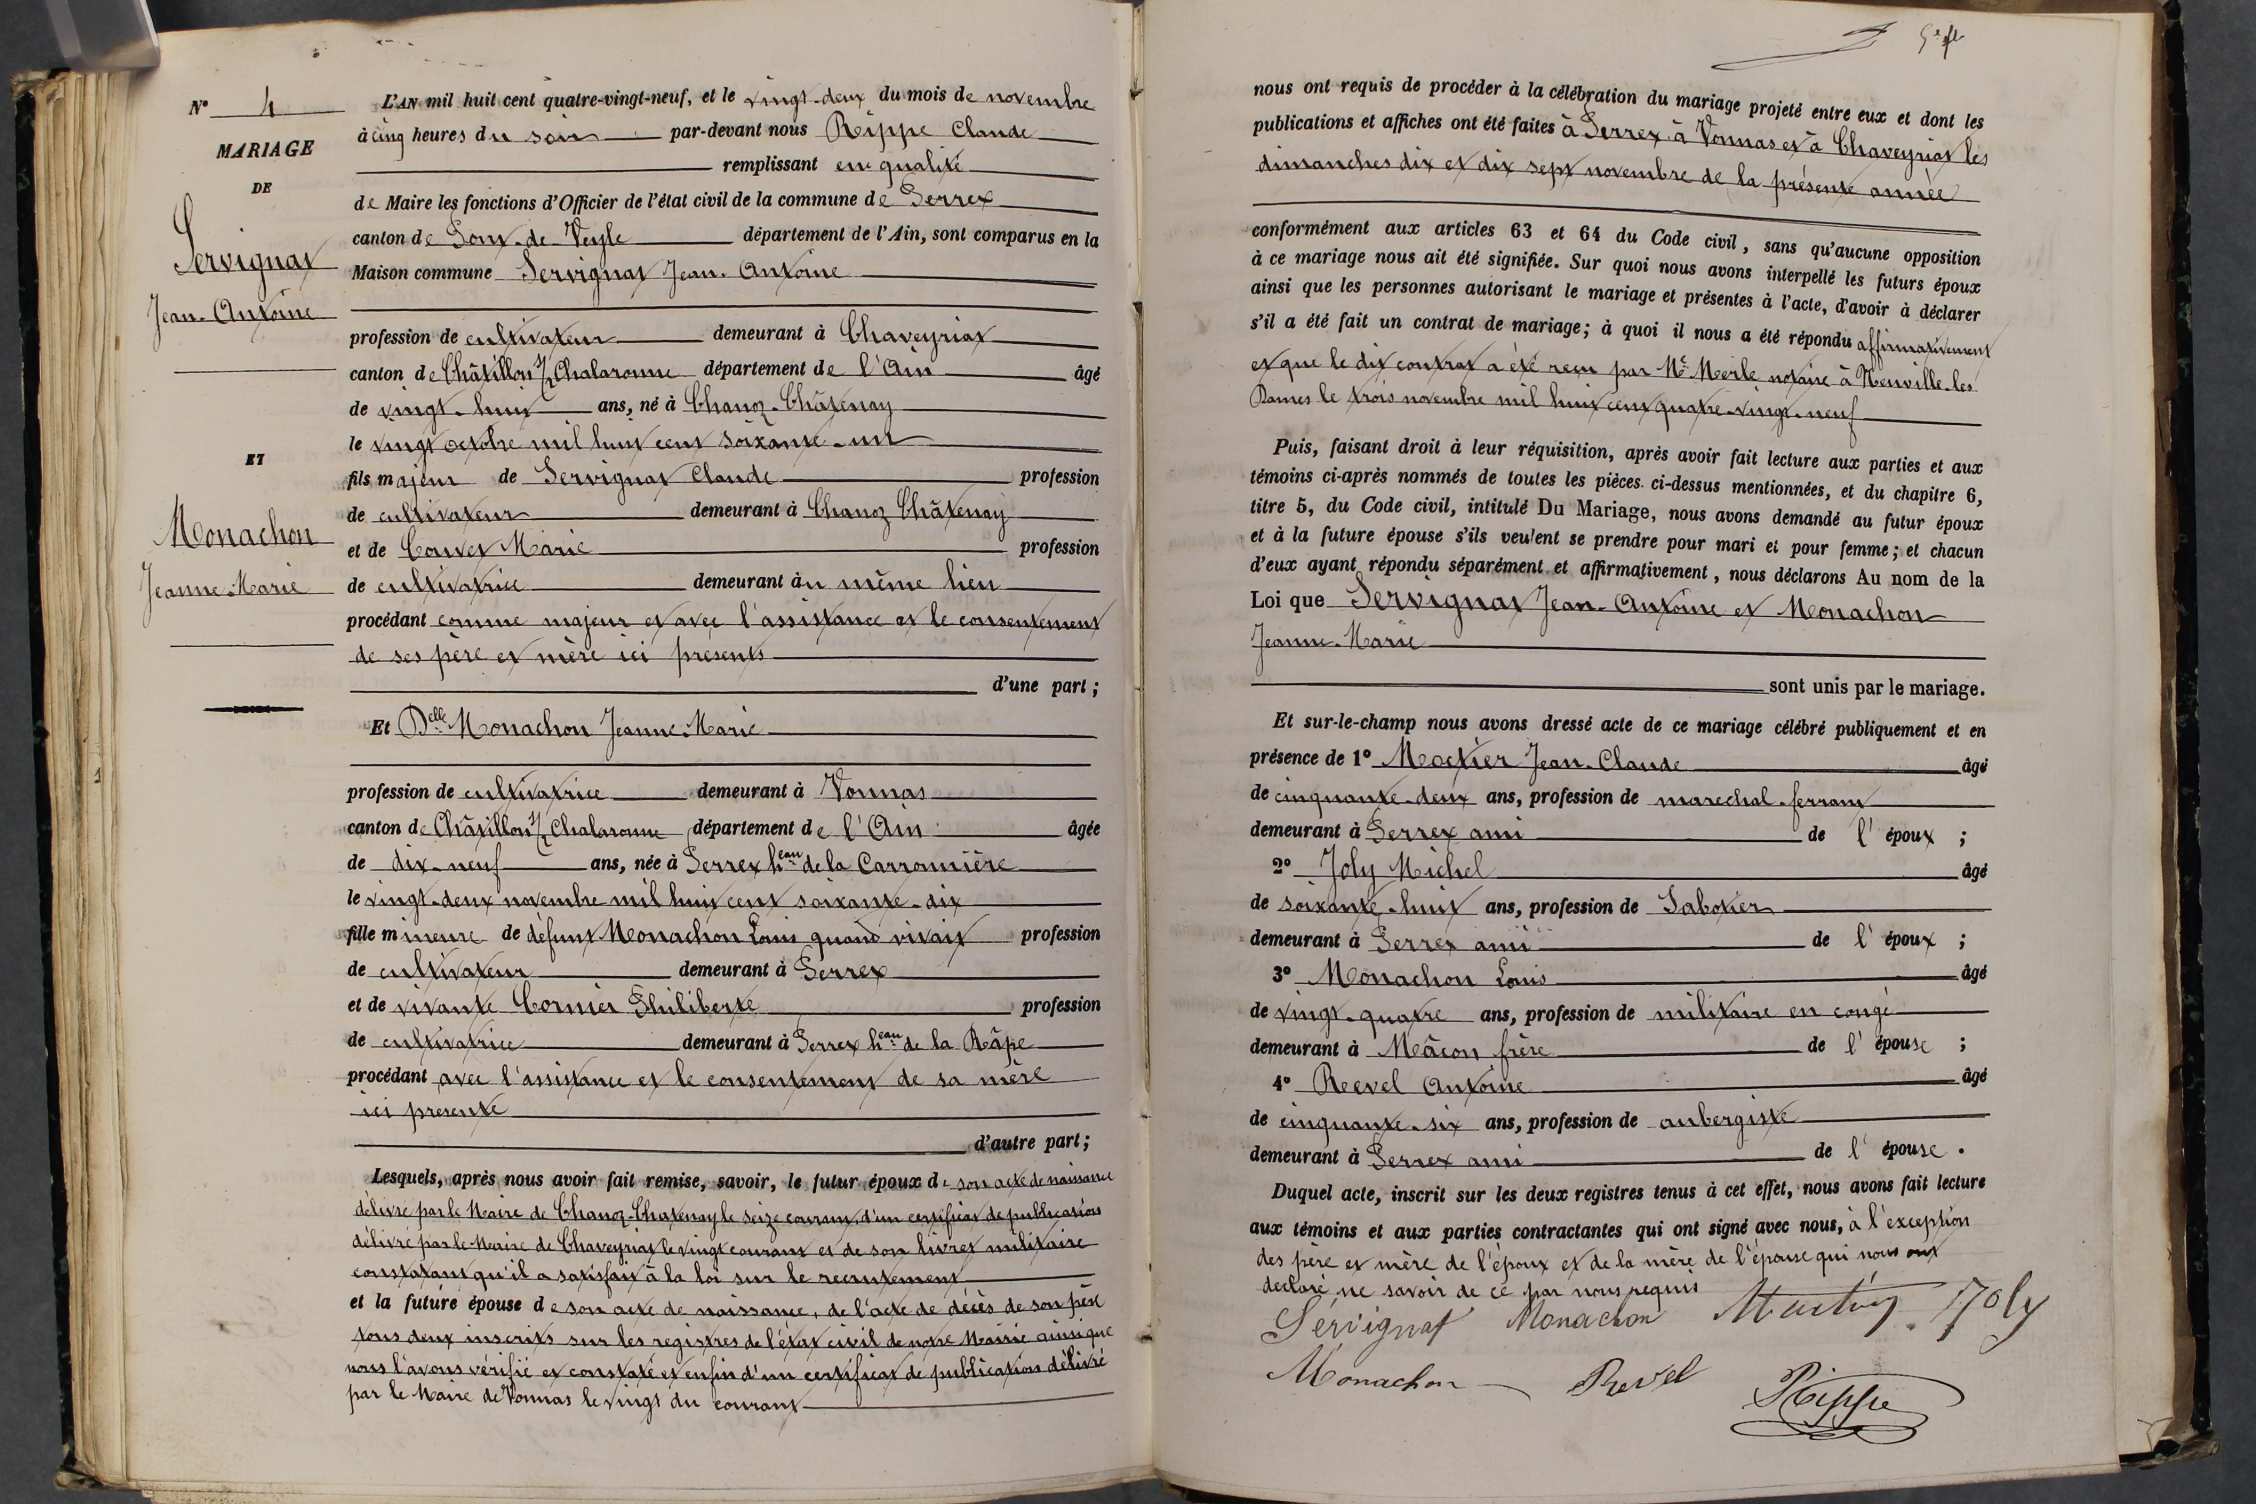 N° 4
MARIAGE
DE
Servignat
Jean-Antoine
ET
Monachon
Jeanne-Marie
L'AN mil huit cent quatre-vingt-neuf, et le vingt-deux du mois de novembre
à cinq heures du soir par-devant nous Rippe Claude
remplissant en qualité
de Maire les fonctions d'Officier de l'état civil de la commune de Perrex
canton de Pont-de-Veyle département de l'Ain, sont comparus en la
Maison commune Servignat Jean-Antoine
profession de cultivateur demeurant à Chaveyriat
canton de Châtillon s/ Chalaronne département de l'Ain âgé
de vingt-huit ans, né à Chanoz-Châtenay
le vingt octobre mil huit cent soixante-un
fils majeur de Servignat Claude profession
de cultivateur demeurant à Chanoz Châtenay
et de Couvet Marie profession
de cultivatrice demeurant àu même lieu
procédant comme majeur et avec l'assistance et le consentement
de ses père et mère ici présents
d'une part ;
Et Delle Monachon Jeanne-Marie
profession de cultivatrice demeurant à Vonnas
canton de Châtillon s/ Chalaronne département de l'Ain âgée
de dix-neuf ans, née à Perrex heau de la Carronnière
le vingt-deux novembre mil huit cent soixante-dix
fille mineure de défunt Monachon Louis quand vivait profession
de cultivateur demeurant à Perrex
et de vivante Cornier Philiberte profession
de cultivatrice demeurant à Perrex heau de la Râpe
procédant avec l'assistance et le consentement de sa mère
ici présente
d'autre part ;
Lesquels, après nous avoir fait remise, savoir, le futur époux de son acte de naissance
délivré par le Maire de Chanoz-Chatenay le seize courant, d'un certificat de publication
délivré par le Maire de Chaveyriat le vingt courant et de son livret militaire
constatant qu'il a satisfait à la loi sur le recrutement
et la future épouse de son acte de naissance, de l'acte de décès de son père
tous deux inscrits sur les registres de l'état civil de notre Mairie ainsi que
nous l'avons vérifié et constaté et enfin d'un certificat de publication délivré
par le Maire de Vonnas le vingt du courant
nous ont requis de procéder à la célébration du mariage projeté entre eux et dont les
publications et affiches ont été faites à Perrex à Vonnas et à Chaveyriat les
dimanches dix et dix sept novembre de la présente année
conformément aux articles 63 et 64 du Code civil, sans qu'aucune opposition
à ce mariage nous ait été signifiée. Sur quoi nous avons interpellé les futurs époux
ainsi que les personnes autorisant le mariage et présentes à l'acte, d'avoir à déclarer
s'il a été fait un contrat de mariage ; à quoi il nous a été répondu affirmativement
et que le dit contrat a été reçu par Me Merle notaire à Neuville-les
Dames le trois novembre mil huit cent quatre-vingt-neuf
Puis, faisant droit à leur réquisition, après avoir fait lecture aux parties et aux
témoins ci-après nommés de toutes les pièces ci-dessus mentionnées, et du chapitre 6,
titre 5, du Code civil, intitulé Du Mariage, nous avons demandé au futur époux
et à la future épouse s'ils veulent se prendre pour mari et pour femme ; et chacun
d'eux ayant répondu séparément et affirmativement, nous déclarons Au nom de la
Loi que Servignat Jean-Antoine et Monachon
Jeanne-Marie
sont unis par le mariage.
Et sur-le-champ nous avons dressé acte de ce mariage célébré publiquement et en
présence de 1° Jean-Claude âgé
de cinquante-deux ans, profession de marechal-ferrant
demeurant à Perrex ami de l'époux ;
2° Joly Michel âgé
de soixante-huit ans, profession de Sabotier
demeurant à Perrex ami de l'époux ;
3° Monachon Louis âgé
de vingt-quatre ans, profession de militaire en congé
demeurant à Mâcon frère de l'épouse ;
4° Revel Antoine âgé
de cinquante-six ans, profession de aubergiste
demeurant à Perrex ami de l'épouse.
Duquel acte, inscrit sur les deux registres tenus à cet effet, nous avons fait lecture
aux témoins et aux parties contractantes qui ont signé avec nous, à l'exception
des père et mère de l'époux et de la mère de l'épouse qui nous ont
déclaré ne savoir de ce par nous requis
Servignat Monachon Joly
Monachon Revel Rippe